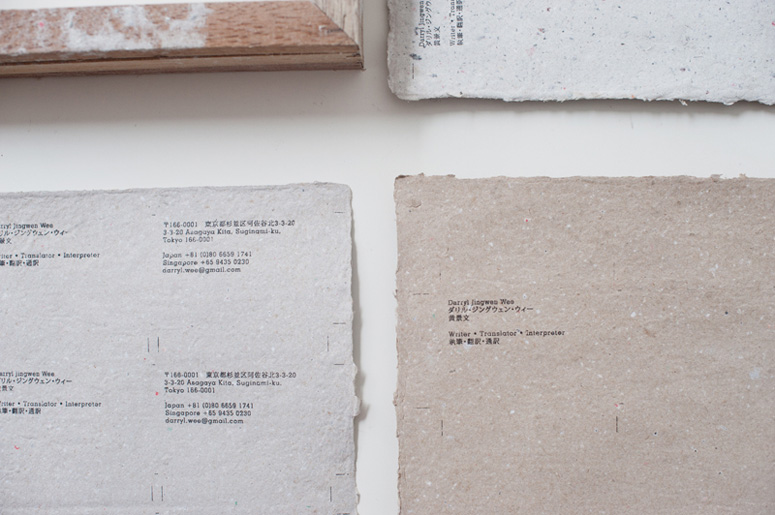 Darryl Jingwen
ダリル・ジングウ
黄景文
Writer • Transl
執筆・翻訳・通訳
arryl Jingwen Wee
リル・ジングウェン・ウィー
景文
riter • Translator • Interpreter
筆・翻訳・通訳
〒166-0001 東京都杉並区阿佐谷北3-3-20
3-3-20 Asagaya Kita, Suginami-ku,
Tokyo 166-0001
Japan +81 (0)80 6659 1741
Singapore +65 9435 0230
darryl.wee@gmail.com
arryl Jingwen Wee
リル・ジングウェン・ウィー
景文
riter • Translator • Interpreter
筆・翻訳・通訳
〒166-0001 東京都杉並区阿佐谷北3-3-20
3-3-20 Asagaya Kita, Suginami-ku,
Tokyo 166-0001
Japan +81 (0)80 6659 1741
Singapore +65 9435 0230
darryl.wee@gmail.com
Darryl Jingwen Wee
ダリル・ジングウェン・ウィー
黄景文
Writer • Translator • Interpreter
執筆・翻訳・通訳